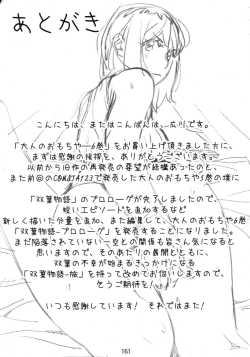 あとがき
こんにちは、またはこんばんは、広りです。
「大人のおもちゃ~6巻」をお買い上げ頂きました方に、
まずは感謝の挨拶を、ありがとうございます。
以前から旧作の再発売の要望が結構あったのと、
また前回のCOMIC1☆23で発売した大人のおもちゃ5巻の後に
「双葉物語」のプロローグが失くしましたので、
短いエピソードを追加するなど
新しく描いた分量を追加し、また編集して、大人のおもちゃ6巻
「双葉物語-プロローグ」を発売することになりました。
まだ陥落されていない一受との関係も皆さん気になると
思いますので、そのあたりの展開とともに、
双葉の不幸が始まるきっかけになる
「双葉物語-旅」を持って改めてお伺いしますので、
どうご期待を!ㅋㅋ
いつも感謝しています! それではまた!
161